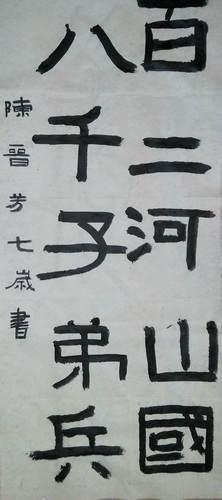 百二河山國
八千子弟兵
陳晉芳七歲書